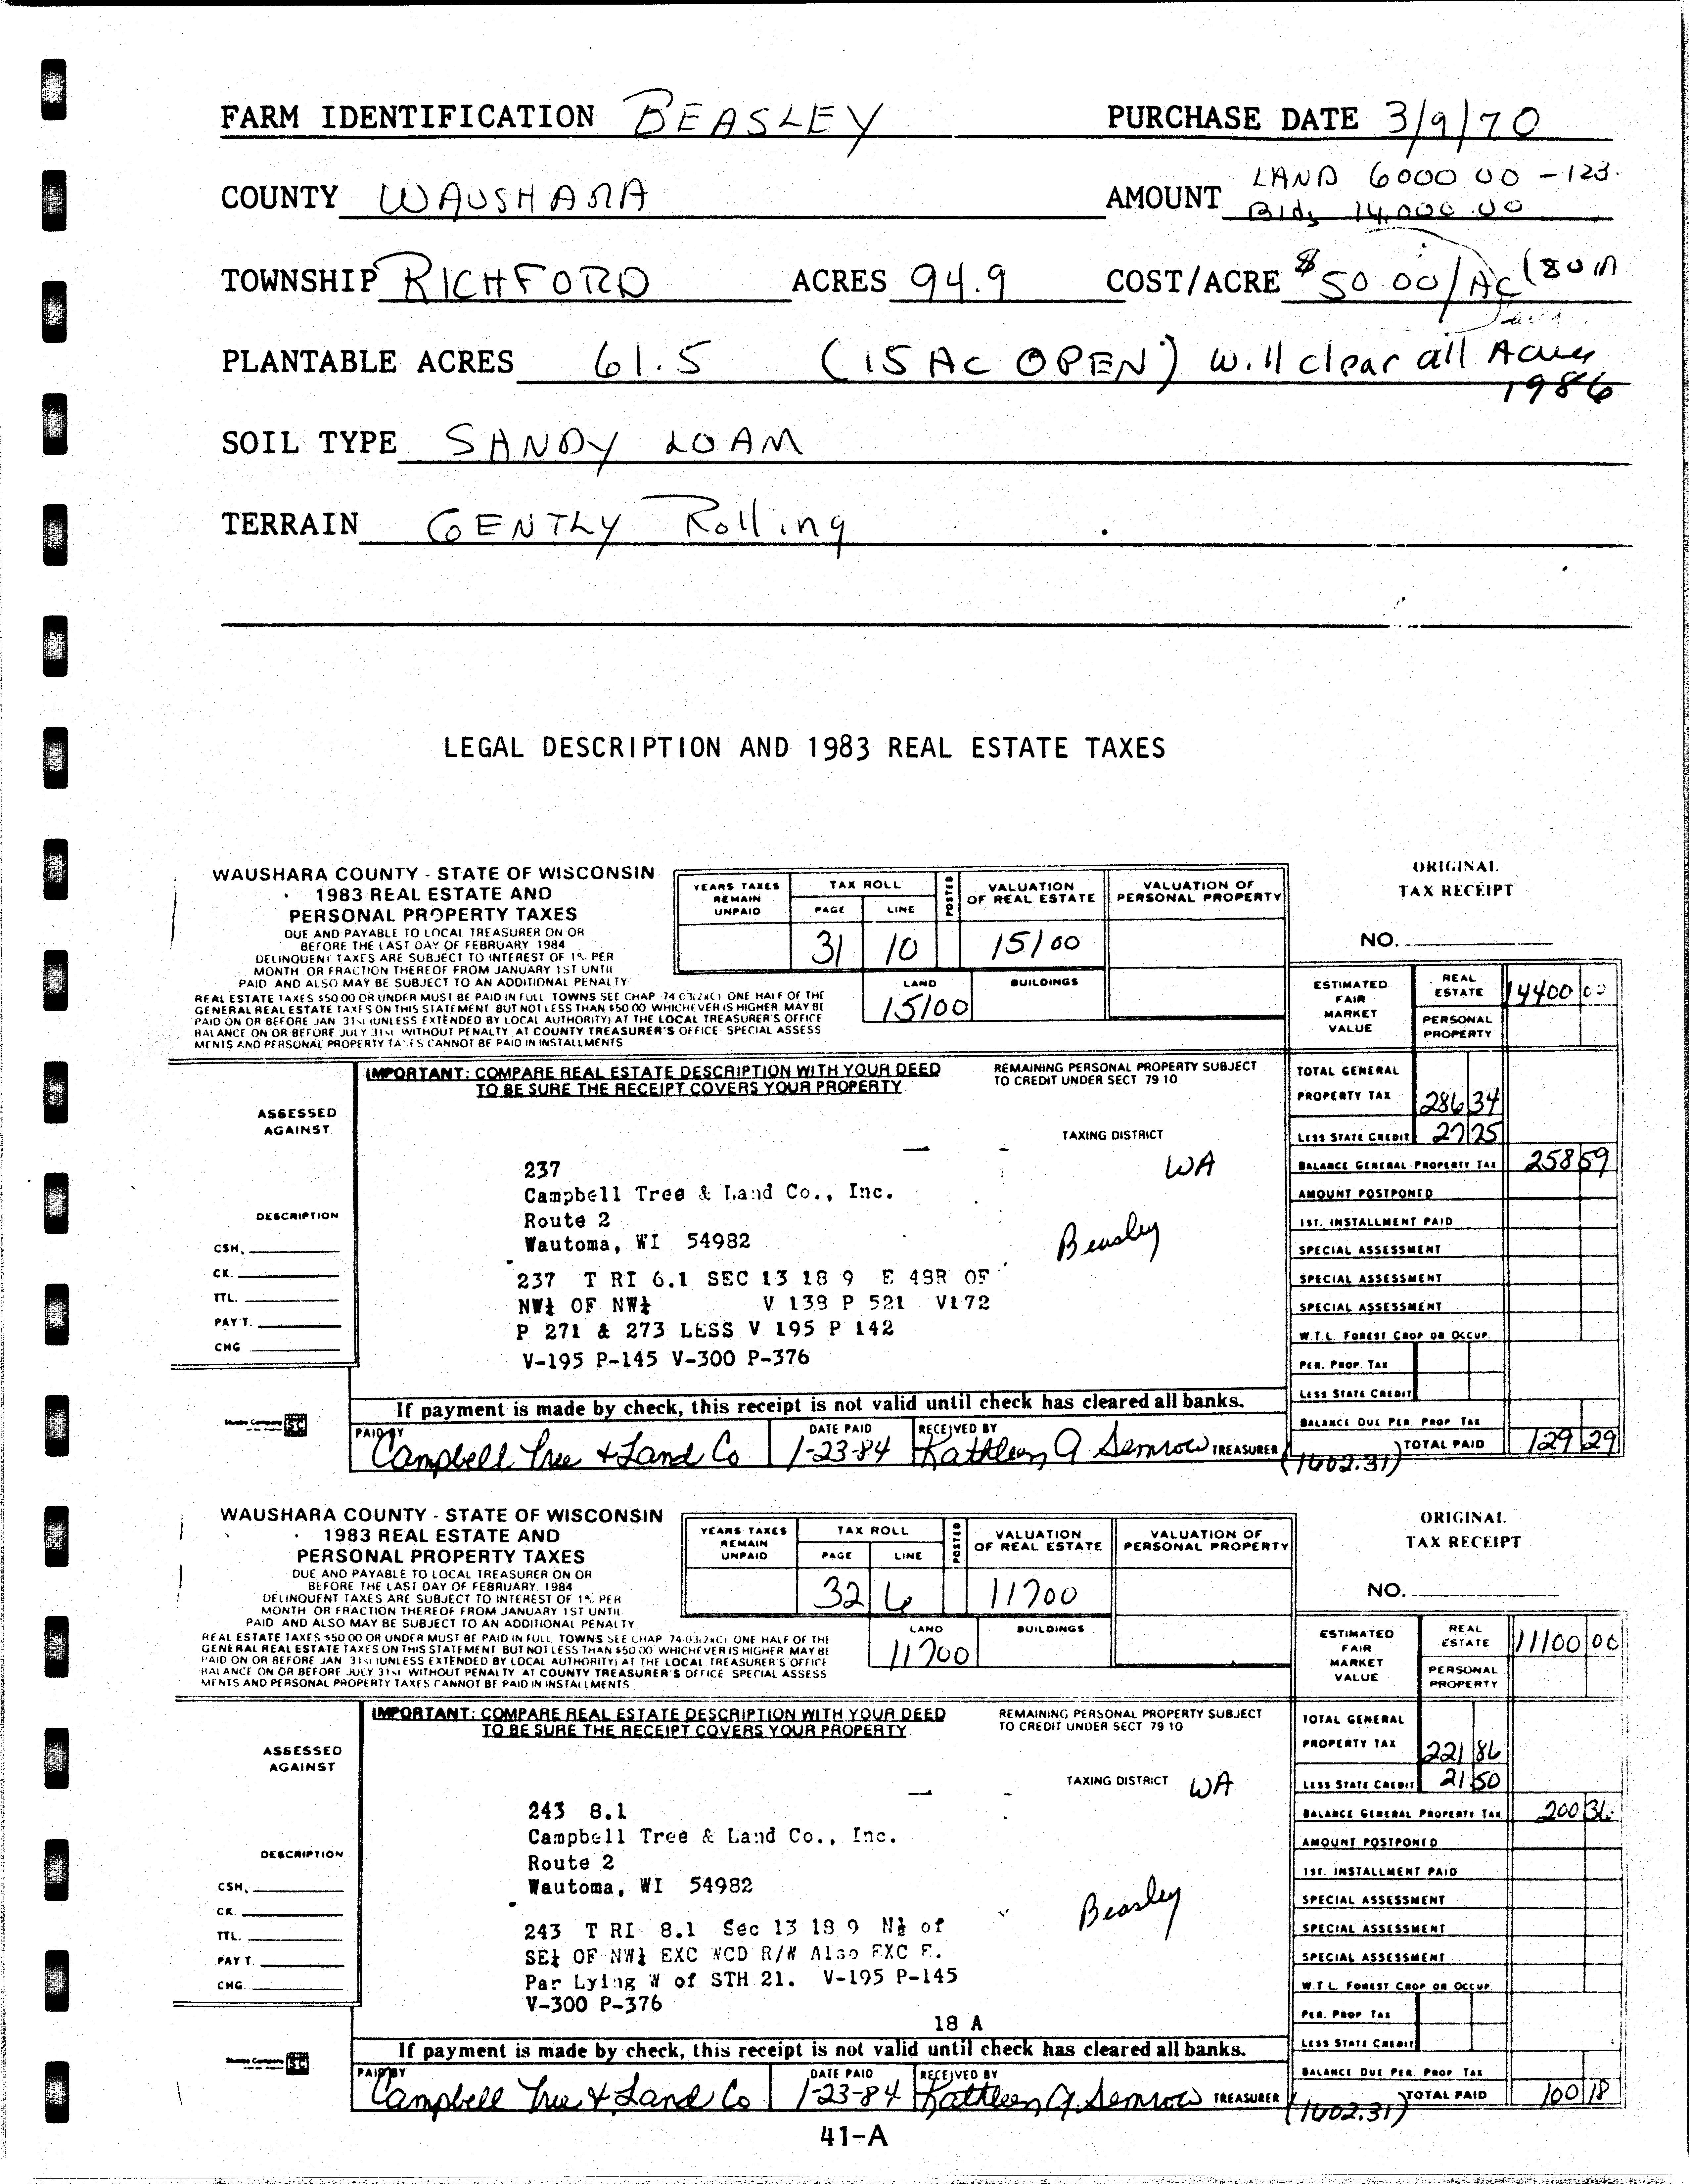 FARM IDENTIFICATION BEASLEY PURCHASE DATE 3/9/70
LAND 6000.00 - 123.
COUNTY WAUSHARA AMOUNT Bldg 14,000.00
TOWNSHIP RICHFORD ACRES 94.9 COST/ACRE $50.00/AC
PLANTABLE ACRES 61.5 (15 AC OPEN) will clear all Acres
1986
SOIL TYPE SANDY LOAM
TERRAIN GENTLY Rolling
LEGAL DESCRIPTION AND 1983 REAL ESTATE TAXES
WAUSHARA COUNTY - STATE OF WISCONSIN
1983 REAL ESTATE AND
PERSONAL PROPERTY TAXES
DUE AND PAYABLE TO LOCAL TREASURER ON OR
BEFORE THE LAST DAY OF FEBRUARY 1984
DELINQUENT TAXES ARE SUBJECT TO INTEREST OF 1% PER
MONTH OR FRACTION THEREOF FROM JANUARY 1ST UNTIL
PAID AND ALSO MAY BE SUBJECT TO AN ADDITIONAL PENALTY
REAL ESTATE TAXES $50.00 OR UNDER MUST BE PAID IN FULL TOWNS SEE CHAP 74.03(2)(C) ONE HALF OF THE
GENERAL REAL ESTATE TAXES ON THIS STATEMENT BUT NOT LESS THAN $50.00 WHICHEVER IS HIGHER MAY BE
PAID ON OR BEFORE JAN 31st (UNLESS EXTENDED BY LOCAL AUTHORITY) AT THE LOCAL TREASURER'S OFFICE
BALANCE ON OR BEFORE JULY 31st WITHOUT PENALTY AT COUNTY TREASURER'S OFFICE SPECIAL ASSESS
MENTS AND PERSONAL PROPERTY TAXES CANNOT BE PAID IN INSTALLMENTS
YEARS TAXES REMAIN UNPAID
TAX ROLL
PAGE LINE
POSTED
VALUATION OF REAL ESTATE
VALUATION OF PERSONAL PROPERTY
31 10 15100
LAND BUILDINGS
15100
ORIGINAL
TAX RECEIPT
NO.
ESTIMATED FAIR MARKET VALUE
REAL ESTATE 14400 00
PERSONAL PROPERTY
IMPORTANT: COMPARE REAL ESTATE DESCRIPTION WITH YOUR DEED
TO BE SURE THE RECEIPT COVERS YOUR PROPERTY.
REMAINING PERSONAL PROPERTY SUBJECT
TO CREDIT UNDER SECT 79 10
ASSESSED
AGAINST
TAXING DISTRICT
WA
237
Campbell Tree & Land Co., Inc.
Route 2
Wautoma, WI 54982
Beasley
237 T RI 6.1 SEC 13 18 9 E 49R OF
NW¼ OF NW¼ V 139 P 521 V172
P 271 & 273 LESS V 195 P 142
V-195 P-145 V-300 P-376
DESCRIPTION
CSH.
CK.
TTL.
PAY T.
CHG
TOTAL GENERAL
PROPERTY TAX 286 34
LESS STATE CREDIT 27 75
BALANCE GENERAL PROPERTY TAX 258 59
AMOUNT POSTPONED
1ST. INSTALLMENT PAID
SPECIAL ASSESSMENT
SPECIAL ASSESSMENT
SPECIAL ASSESSMENT
W.T.L. FOREST CROP OR OCCUP.
PER. PROP. TAX
LESS STATE CREDIT
BALANCE DUE PER. PROP TAX
TOTAL PAID 129 29
If payment is made by check, this receipt is not valid until check has cleared all banks.
PAID BY DATE PAID RECEIVED BY
Campbell Tree & Land Co. 1-23-84 Kathleen A. Semrow TREASURER
(1402.31)
WAUSHARA COUNTY - STATE OF WISCONSIN
1983 REAL ESTATE AND
PERSONAL PROPERTY TAXES
DUE AND PAYABLE TO LOCAL TREASURER ON OR
BEFORE THE LAST DAY OF FEBRUARY, 1984
DELINQUENT TAXES ARE SUBJECT TO INTEREST OF 1% PER
MONTH OR FRACTION THEREOF FROM JANUARY 1ST UNTIL
PAID AND ALSO MAY BE SUBJECT TO AN ADDITIONAL PENALTY
REAL ESTATE TAXES $50.00 OR UNDER MUST BE PAID IN FULL TOWNS SEE CHAP 74.03(2)(C) ONE HALF OF THE
GENERAL REAL ESTATE TAXES ON THIS STATEMENT BUT NOT LESS THAN $50.00 WHICHEVER IS HIGHER MAY BE
PAID ON OR BEFORE JAN 31st (UNLESS EXTENDED BY LOCAL AUTHORITY) AT THE LOCAL TREASURER'S OFFICE
BALANCE ON OR BEFORE JULY 31st WITHOUT PENALTY AT COUNTY TREASURER'S OFFICE SPECIAL ASSESS
MENTS AND PERSONAL PROPERTY TAXES CANNOT BE PAID IN INSTALLMENTS
YEARS TAXES REMAIN UNPAID
TAX ROLL
PAGE LINE
POSTED
VALUATION OF REAL ESTATE
VALUATION OF PERSONAL PROPERTY
32 6 11700
LAND BUILDINGS
11700
ORIGINAL
TAX RECEIPT
NO.
ESTIMATED FAIR MARKET VALUE
REAL ESTATE 11100 00
PERSONAL PROPERTY
IMPORTANT: COMPARE REAL ESTATE DESCRIPTION WITH YOUR DEED
TO BE SURE THE RECEIPT COVERS YOUR PROPERTY.
REMAINING PERSONAL PROPERTY SUBJECT
TO CREDIT UNDER SECT 79 10
ASSESSED
AGAINST
TAXING DISTRICT WA
243 8.1
Campbell Tree & Land Co., Inc.
Route 2
Wautoma, WI 54982
Beasley
243 T RI 8.1 Sec 13 18 9 N½ of
SE¼ OF NW¼ EXC WCD R/W Also EXC E.
Par Lying W of STH 21. V-195 P-145
V-300 P-376
18 A
DESCRIPTION
CSH.
CK.
TTL.
PAY T.
CHG.
TOTAL GENERAL
PROPERTY TAX 221 86
LESS STATE CREDIT 21 50
BALANCE GENERAL PROPERTY TAX 200 36
AMOUNT POSTPONED
1ST. INSTALLMENT PAID
SPECIAL ASSESSMENT
SPECIAL ASSESSMENT
SPECIAL ASSESSMENT
W.T.L. FOREST CROP OR OCCUP.
PER. PROP TAX
LESS STATE CREDIT
BALANCE DUE PER. PROP TAX
TOTAL PAID 100 18
If payment is made by check, this receipt is not valid until check has cleared all banks.
PAID BY DATE PAID RECEIVED BY
Campbell Tree & Land Co 1-23-84 Kathleen A. Semrow TREASURER
(1402.31)
41-A